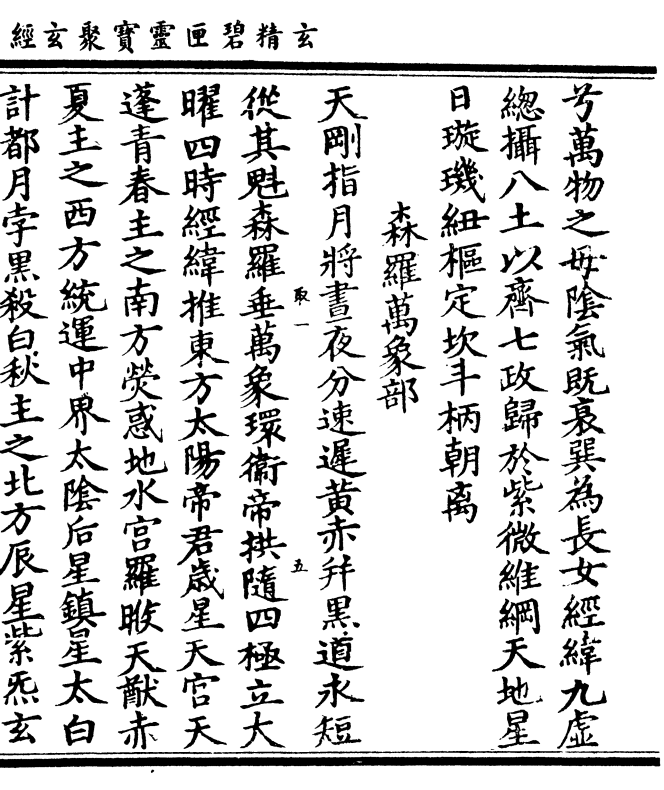 玄精碧匣靈寶聚玄經
兮萬物之母陰氣既衰巽為長女經緯九虛
總攝八土以齊七政歸於紫微維綱天地星
日璇璣紐樞定坎斗柄朝离
森羅萬象部
天剛指月將晝夜分速遲黃赤幷黑道永短
從其魁森羅垂萬象環衞帝拱隨四極立大
取一
五
曜四時經緯推東方太陽帝君歲星天宮天
蓬青春主之南方熒惑地水宮羅睺天猷赤
夏主之西方統運中界太陰后星鎮星太白
計都月孛黑殺白秋主之北方辰星紫炁玄